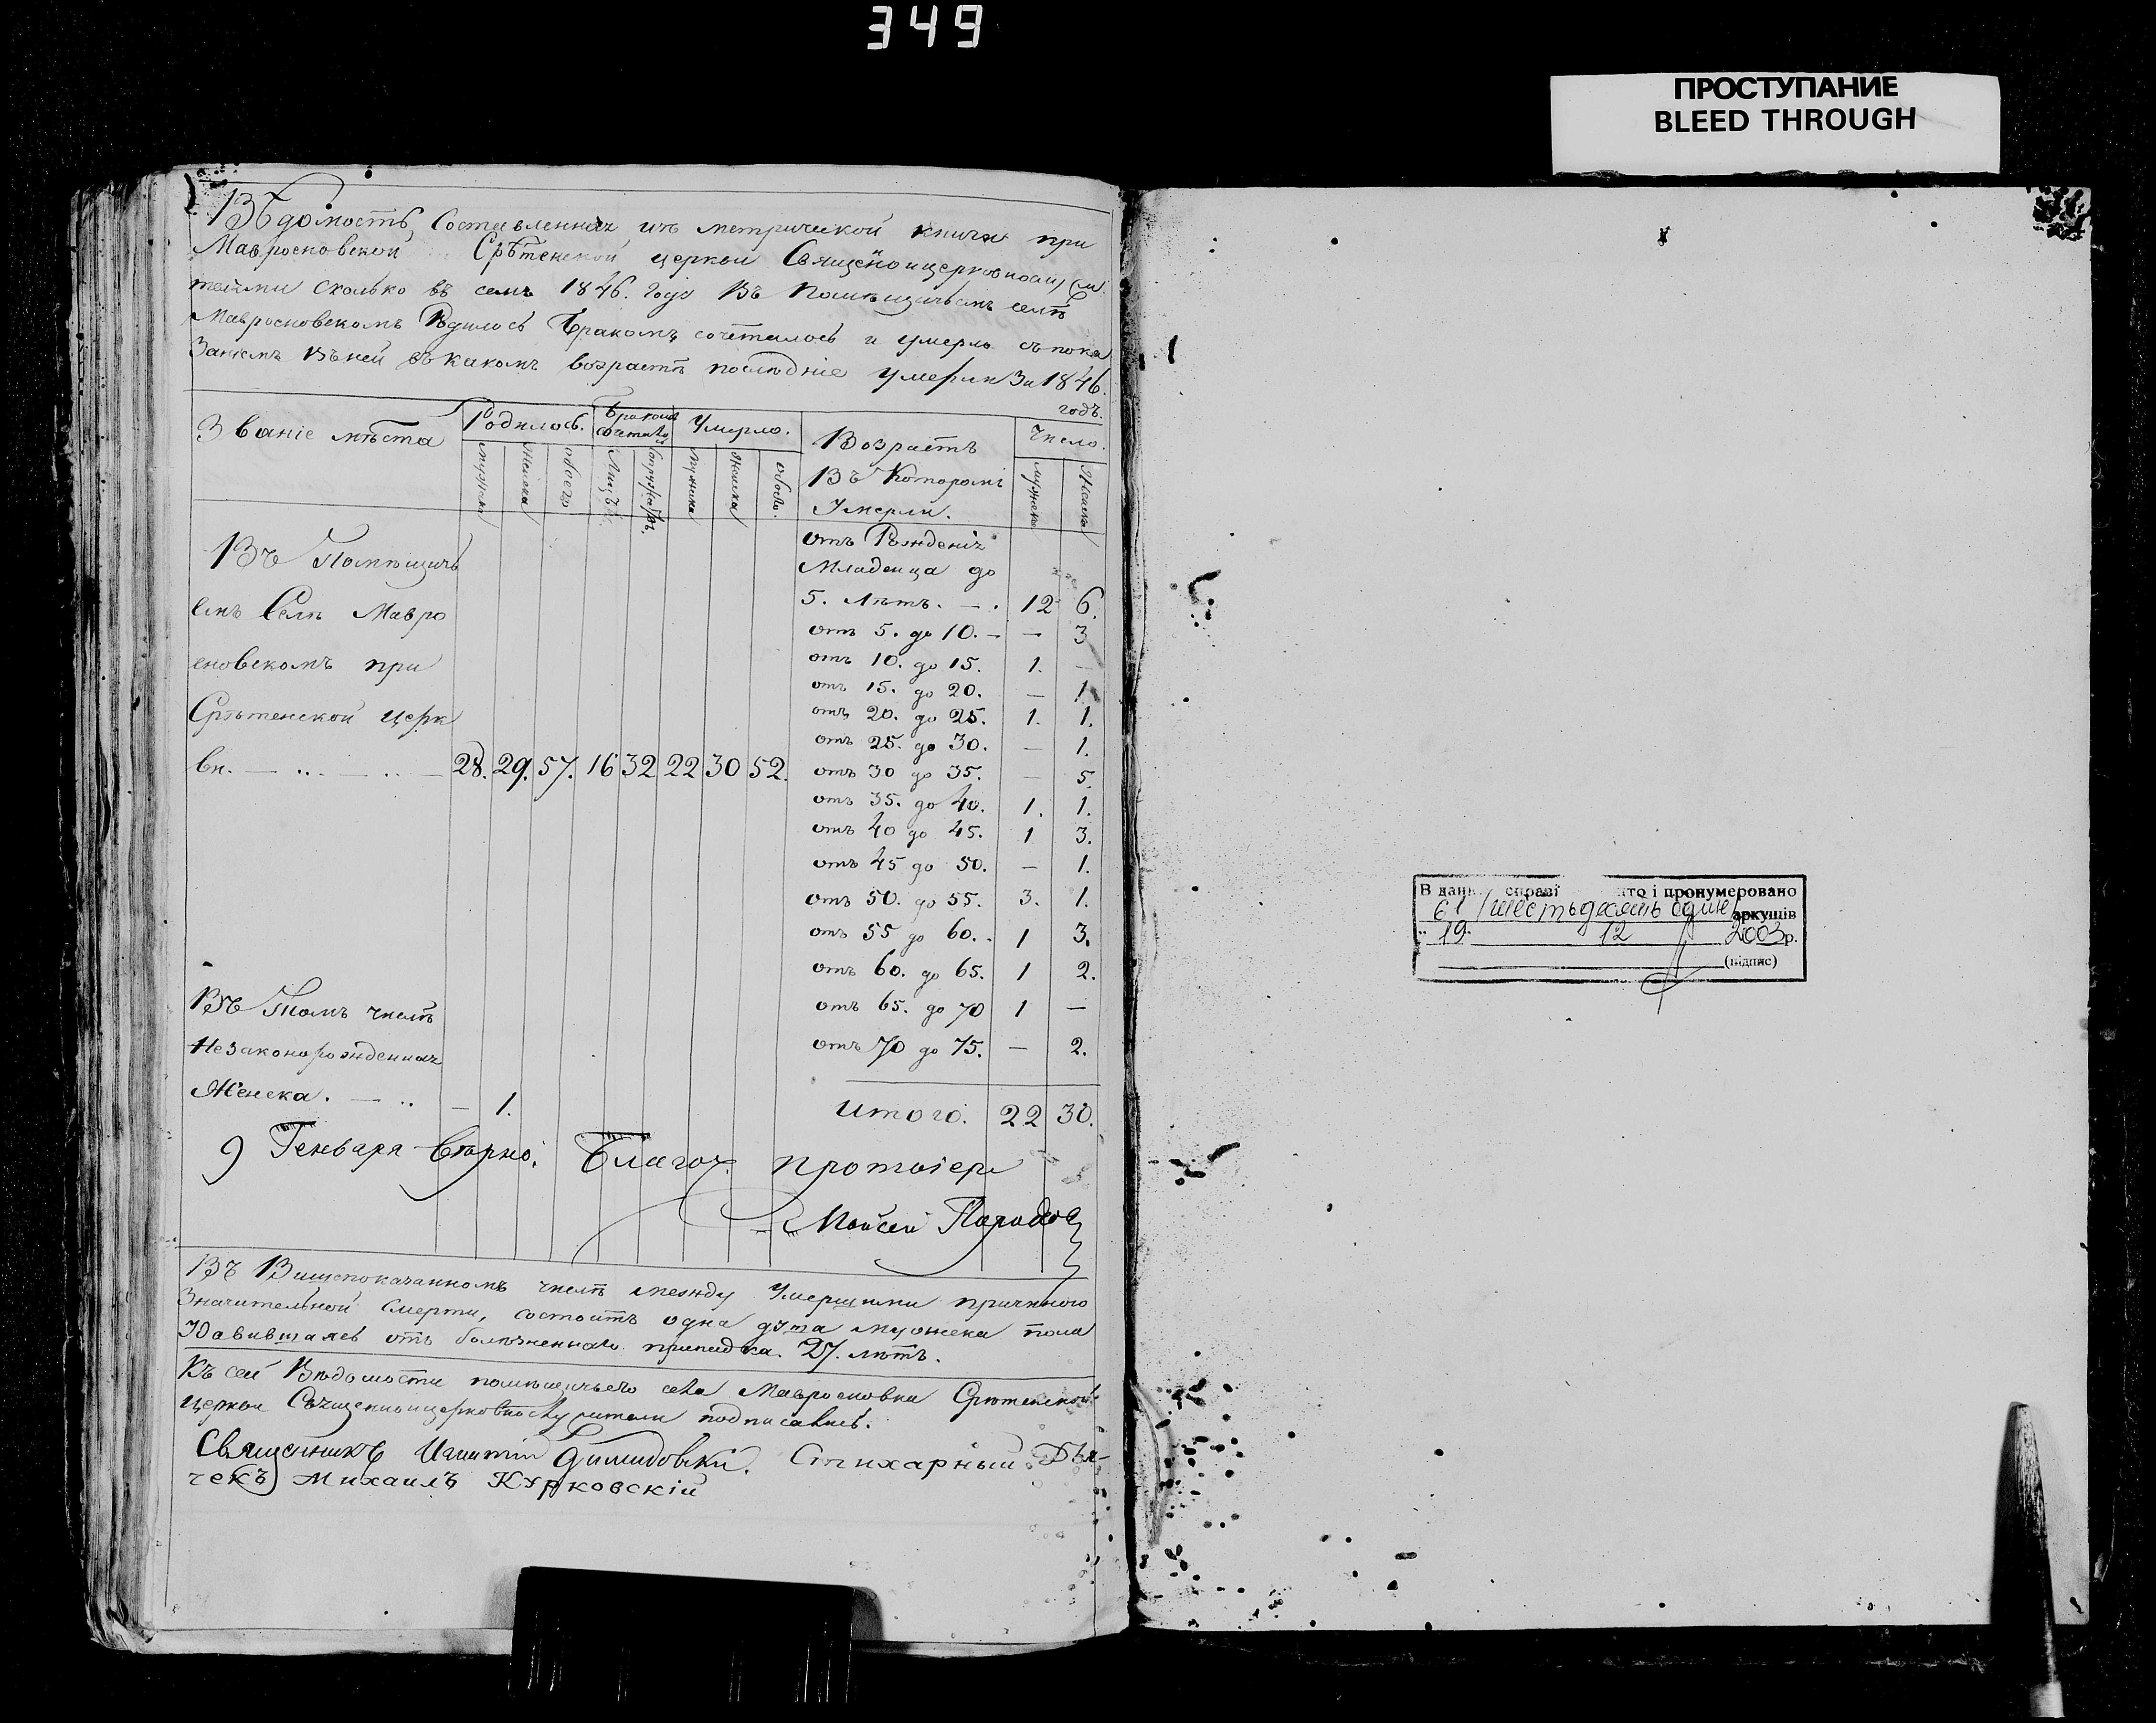 349
ПРОСТУПАНИЕ
BLEED THROUGH
Вѣдомость, Составленная изъ метрической книги при
Мавросновской Срѣтенской церкви Священоицерковнослужи
телями сколько въ семъ 1846. Году Въ Помѣщичьемъ селѣ
Мавросновскомъ Родилось Бракомъ сочеталось и умерло съ пока
заніемъ въ ней въ какомъ возрастѣ послѣдніе умерли За 1846.
годъ.
Званіе мѣста
Родилось.
Бракомъ сочеталось
Умерло.
Возрастъ
Въ Которомъ
Умерли.
Число.
мужска
Женска
обоего
Лицъ
мужска
Женска
обоего.
мужска
Женска
Въ Помѣщичь
емъ Селѣ Мавро
сновскомъ при
Срѣтенской церк
ви. 28. 29. 57. 16 32 22 30 52.
отъ Рожденія
Младенца до
5. лѣтъ. — . 12 6.
отъ 5. до 10. — — 3
отъ 10. до 15. 1. —
отъ 15. до 20. — 1
отъ 20. до 25. 1. 1.
отъ 25. до 30. — 1.
отъ 30 до 35. — 5.
отъ 35. до 40. 1. 1.
отъ 40 до 45. 1 3.
отъ 45 до 50. — 1.
отъ 50. до 55. 3. 1.
отъ 55 до 60. . 1 3.
отъ 60. до 65. 1 2.
отъ 65. до 70 1 —
отъ 70 до 75. — 2.
Въ Томъ числѣ
Незаконорожденная
Женска. — .. — 1.
итого. 22 30.
9 Генваря Вѣрно. Благоч. протоіер
Моисей
Въ Вишепоказанномъ числѣ между Умершими причиного
Значительной Смерти, состоитъ одна душа мужеска пола
Удавившаясь отъ болѣзненнаго припадка. 27. лѣтъ.
Къ сей Вѣдомости помѣщичьего села Мавросновки Срѣтенской
церкви Священноицерковнослужители подписались.
Священникъ Стихарный Дья-
чекъ Михаилъ Курковскій
В даній справі
то і пронумеровано
61 /шестьдесять один/ аркушів
" 19. 12 2003р.
(підпис)